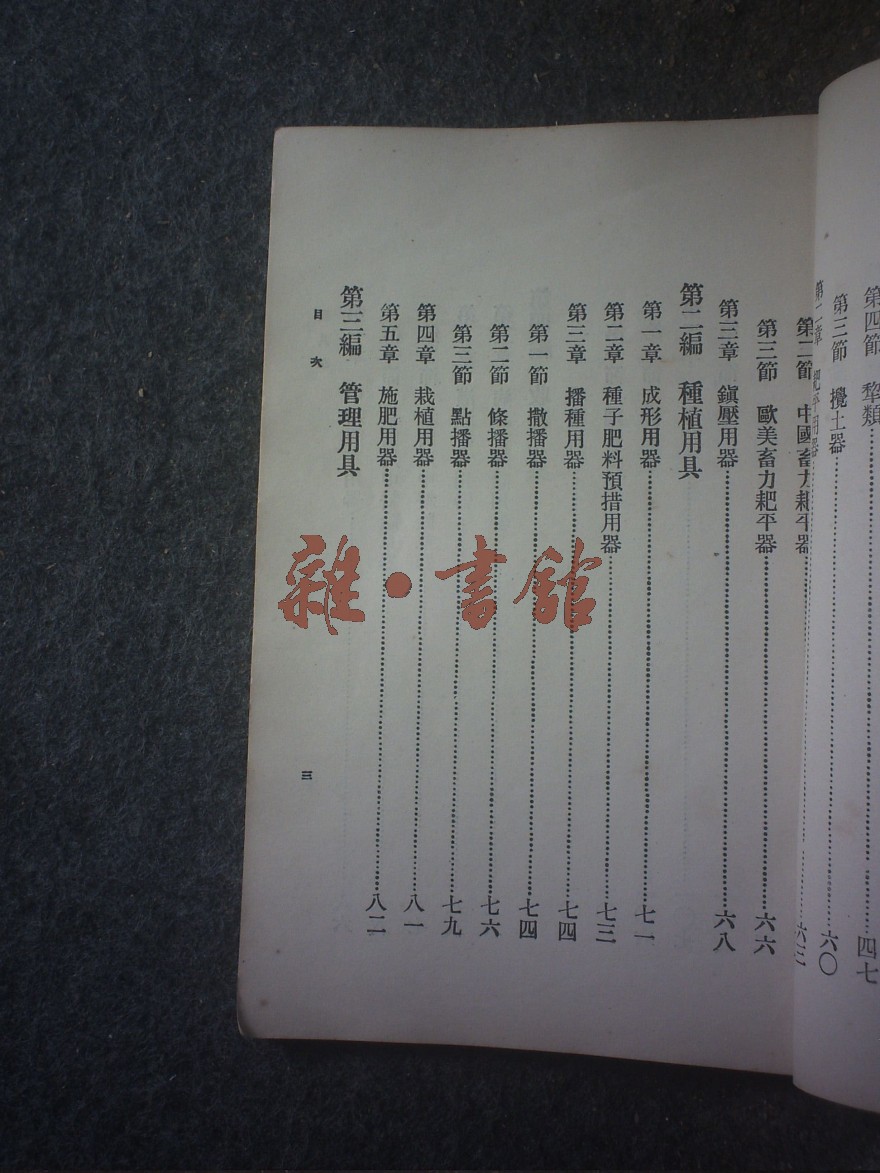 第四節　犂類……四七
第三節　攪土器……六〇
第二節　中國畜力耙平器……六三
第三節　歐美畜力耙平器……六六
第三章　鎭壓用器……六八
第二編　種植用具
第一章　成形用器……七一
第二章　種子肥料預措用器……七三
第三章　播種用器……七四
第一節　撒播器……七四
第二節　條播器……七六
第三節　點播器……七九
第四章　栽植用器……八一
第五章　施肥用器……八二
第三編　管理用具
目次
三
雜·書館